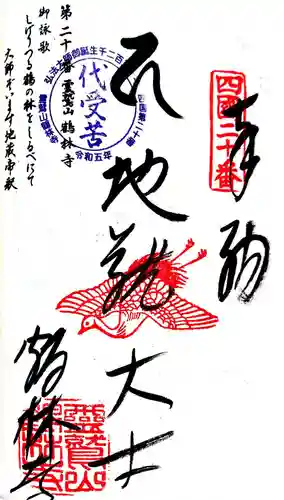 四國二十番
奉納
地蔵大士
鶴林寺
霊鷲山
弘法大師御誕生千二百
四国第二十番
代受苦
令和五年
霊鷲山鶴林寺
第二十番 霊鷲山 鶴林寺
御詠歌
しげりつる鶴の林をしるべにて
大師ぞいます地蔵帝釈